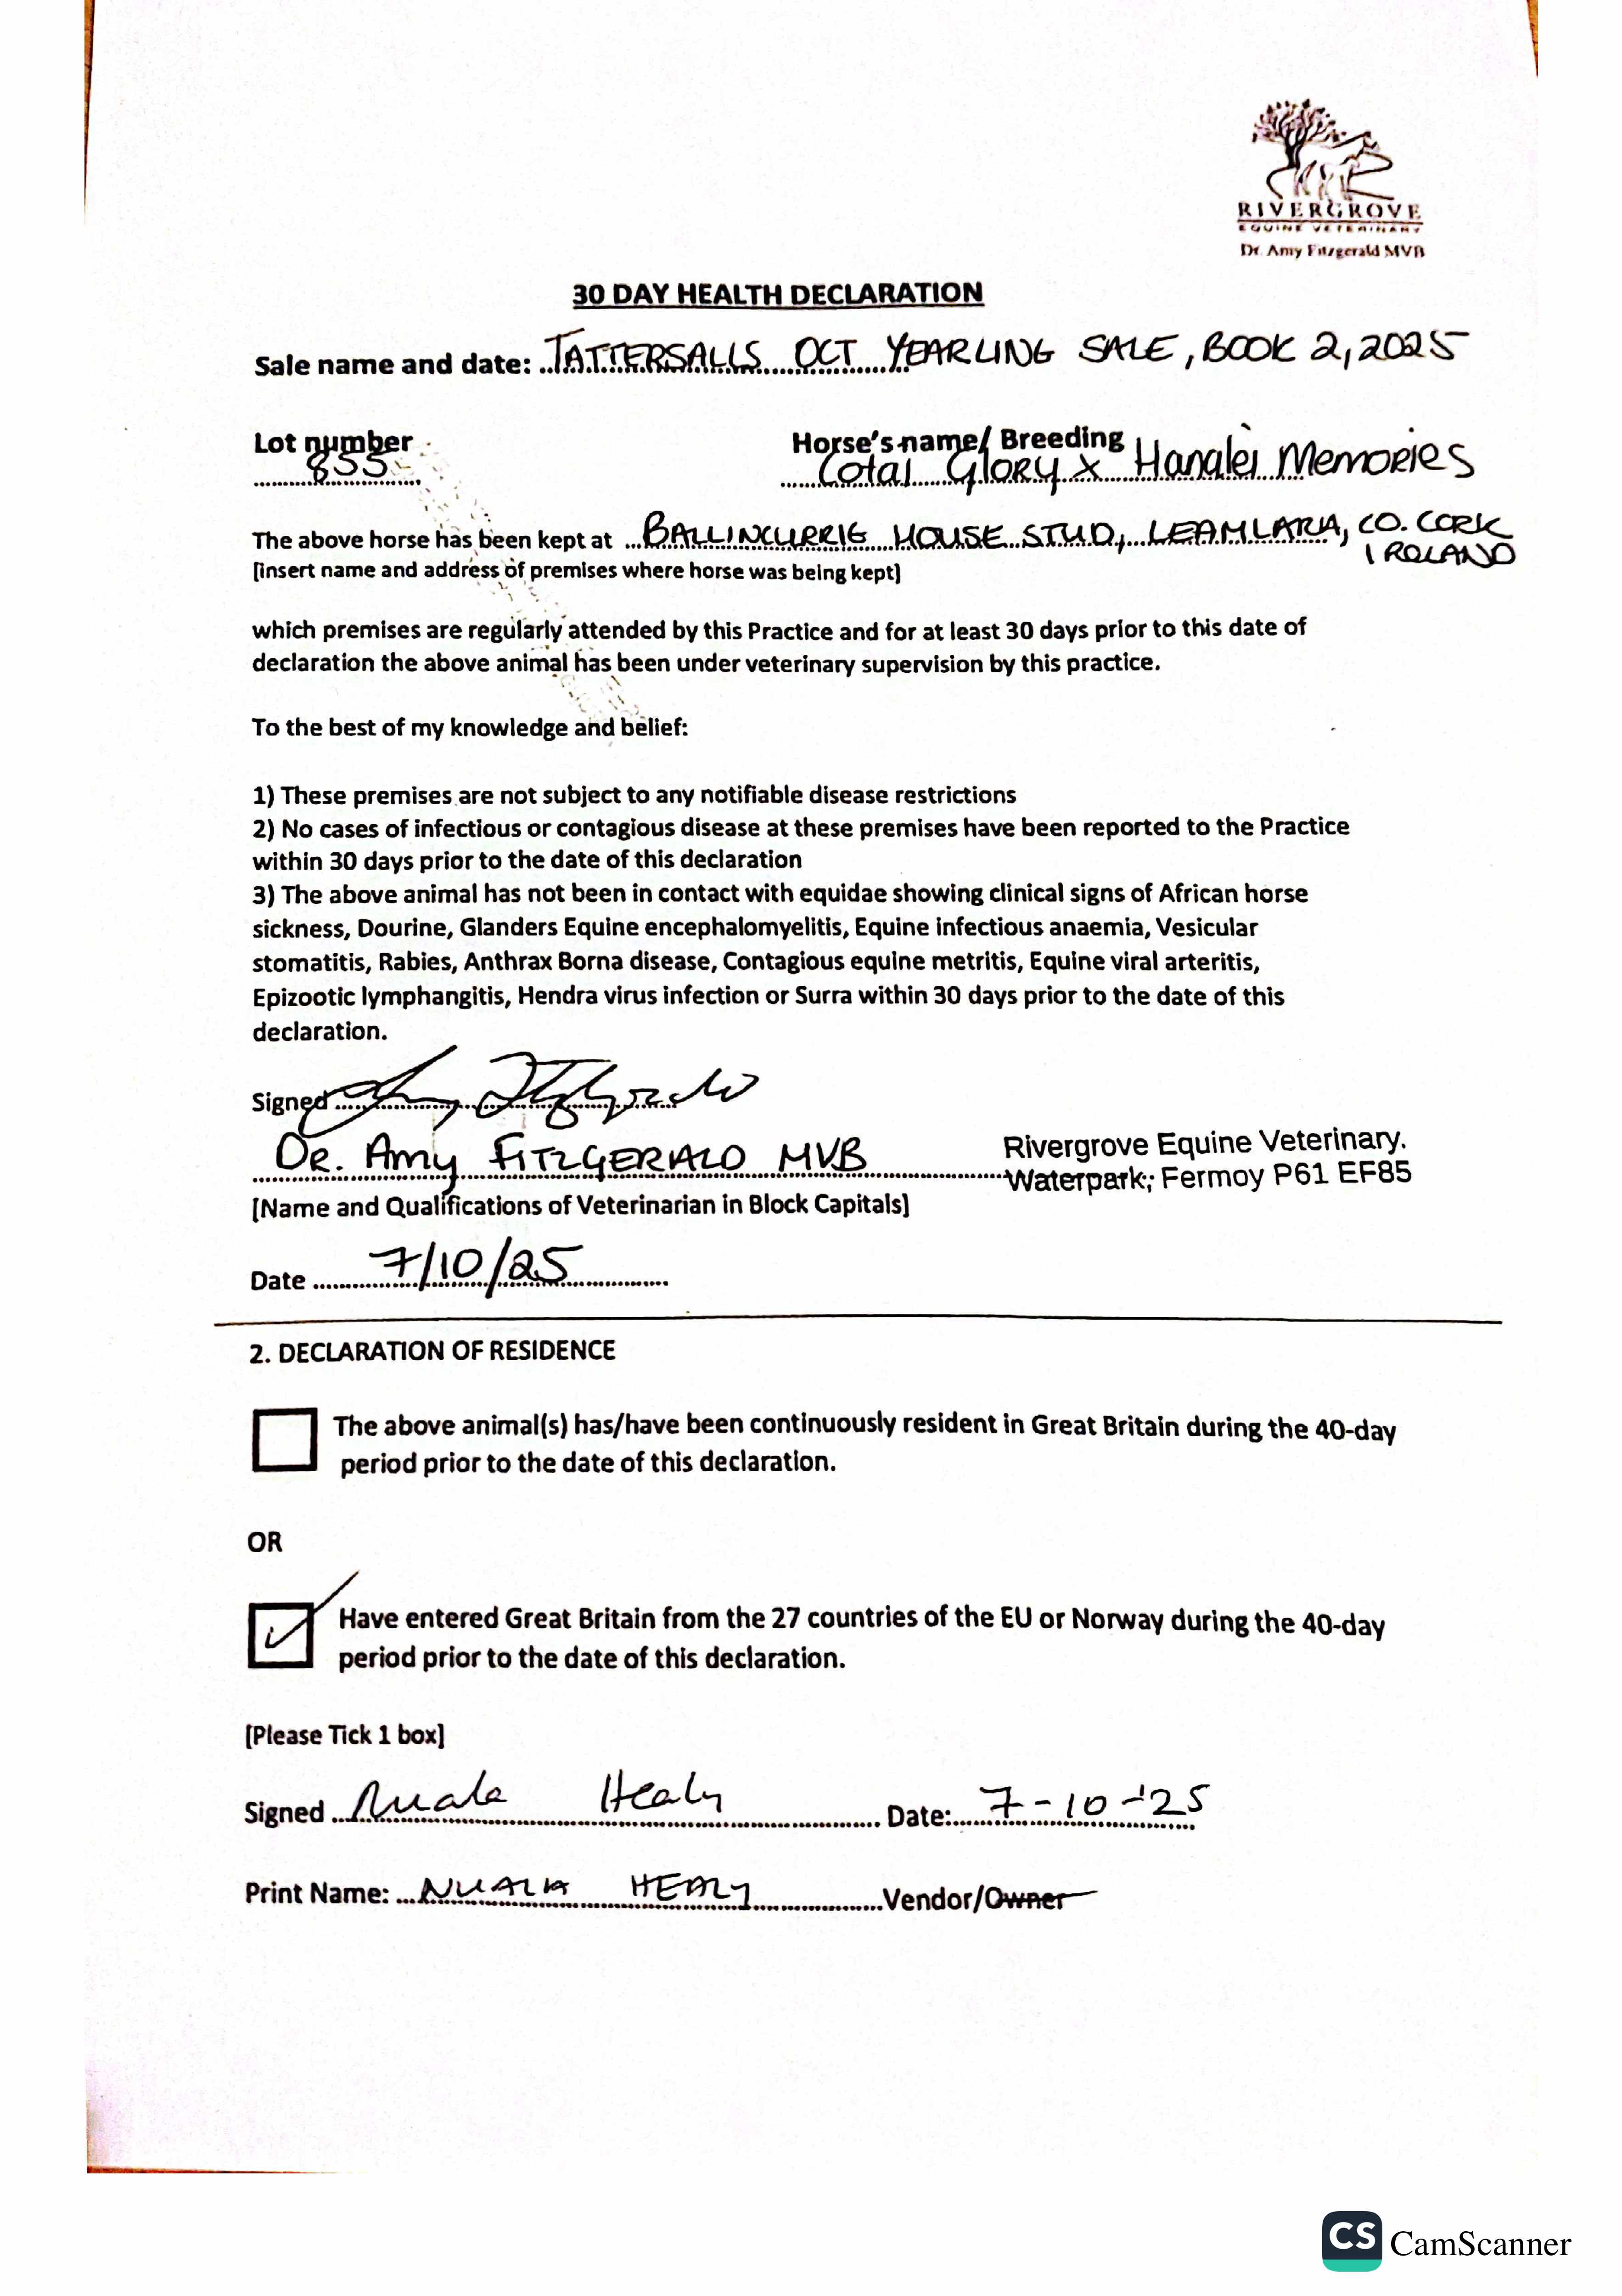 RIVERGROVE
EQUINE VETERINARY
Dr. Amy Fitzgerald MVB
30 DAY HEALTH DECLARATION
Sale name and date: TATTERSALLS OCT YEARLING SALE, BOOK 2, 2025
Lot number 855
Horse's name/ Breeding Cotai Glory x Hanalei Memories
The above horse has been kept at BALLINCURRIG HOUSE STUD, LEAMLARA, CO. CORK
IRELAND
[insert name and address of premises where horse was being kept]
which premises are regularly attended by this Practice and for at least 30 days prior to this date of
declaration the above animal has been under veterinary supervision by this practice.
To the best of my knowledge and belief:
1) These premises are not subject to any notifiable disease restrictions
2) No cases of infectious or contagious disease at these premises have been reported to the Practice
within 30 days prior to the date of this declaration
3) The above animal has not been in contact with equidae showing clinical signs of African horse
sickness, Dourine, Glanders Equine encephalomyelitis, Equine infectious anaemia, Vesicular
stomatitis, Rabies, Anthrax Borna disease, Contagious equine metritis, Equine viral arteritis,
Epizootic lymphangitis, Hendra virus infection or Surra within 30 days prior to the date of this
declaration.
Signed Amy Fitzgerald
DR. AMY FITZGERALD MVB
Rivergrove Equine Veterinary.
Waterpark; Fermoy P61 EF85
[Name and Qualifications of Veterinarian in Block Capitals]
Date 7/10/25
2. DECLARATION OF RESIDENCE
The above animal(s) has/have been continuously resident in Great Britain during the 40-day
period prior to the date of this declaration.
OR
Have entered Great Britain from the 27 countries of the EU or Norway during the 40-day
period prior to the date of this declaration.
[Please Tick 1 box]
Signed Nuala Healy Date: 7-10-'25
Print Name: NUALA HEALY Vendor/Owner
CS CamScanner